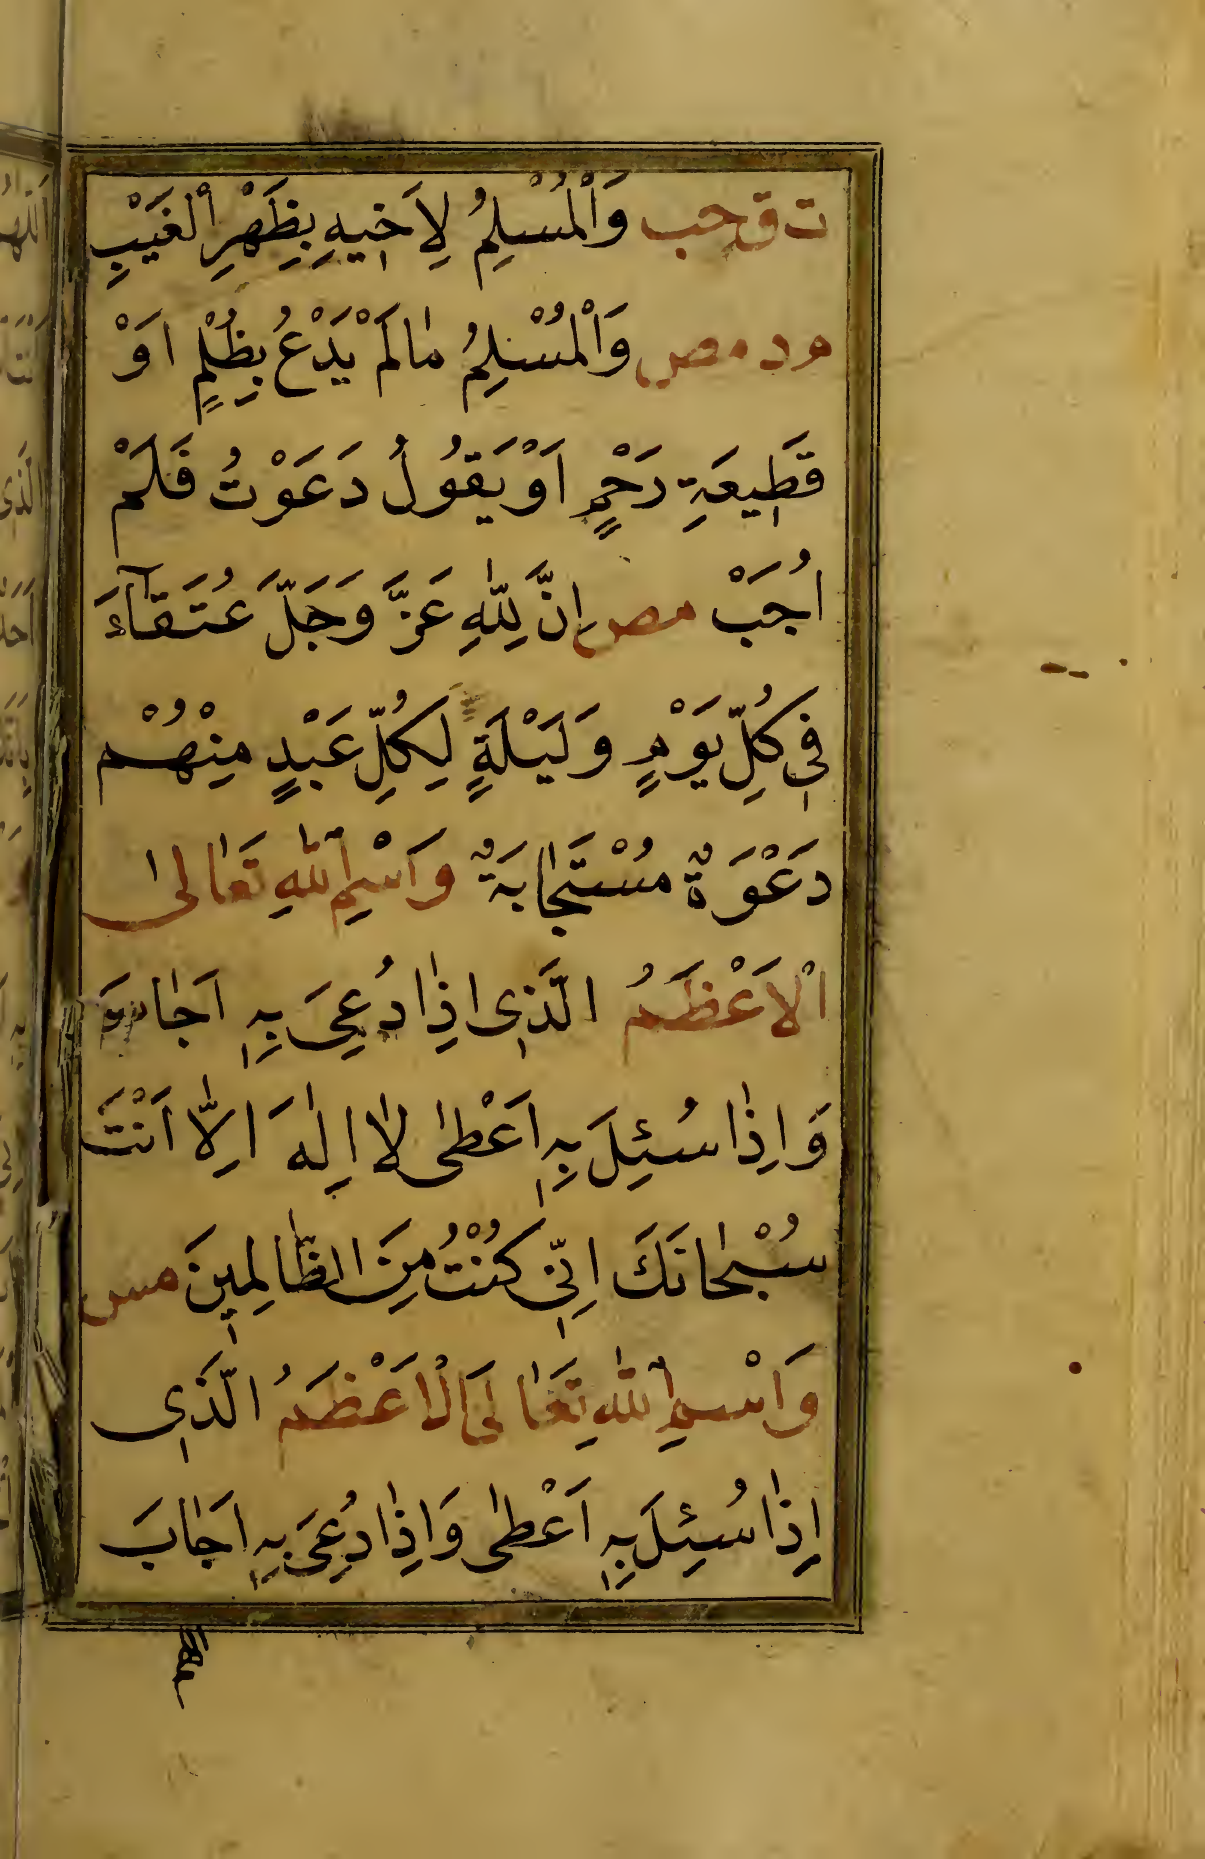 ت ق حب وَالْمُسْلِمُ لِاَخِيهِ بِظَهْرِ الْغَيْبِ
م د مص وَالْمُسْلِمُ مٰا لَمْ يَدْعُ بِظُلْمٍ اَوْ
قَطِيعَةِ رَحِمٍ اَوْ يَقُولُ دَعَوْتُ فَلَمْ
اُجَبْ مص اِنَّ لِلّٰهِ عَزَّ وَجَلَّ عُتَقَآءَ
فِى كُلِّ يَوْمٍ وَلَيْلَةٍ لِكُلِّ عَبْدٍ مِنْهُمْ
دَعْوَةٌ مُسْتَجٰابَةٌ وَاسْمُ اللّٰهِ تَعٰالىٰ
الْاَعْظَمُ الَّذِى اِذٰا دُعِىَ بِهِ اَجٰابَ
وَاِذٰا سُئِلَ بِهِ اَعْطىٰ لٰا اِلٰهَ اِلّٰا اَنْتَ
سُبْحٰانَكَ اِنِّى كُنْتُ مِنَ الظّٰالِمِينَ مس
وَاسْمُ اللّٰهِ تَعٰالَى الْاَعْظَمُ الَّذِى
اِذٰا سُئِلَ بِهِ اَعْطىٰ وَاِذٰا دُعِىَ بِهِ اَجٰابَ